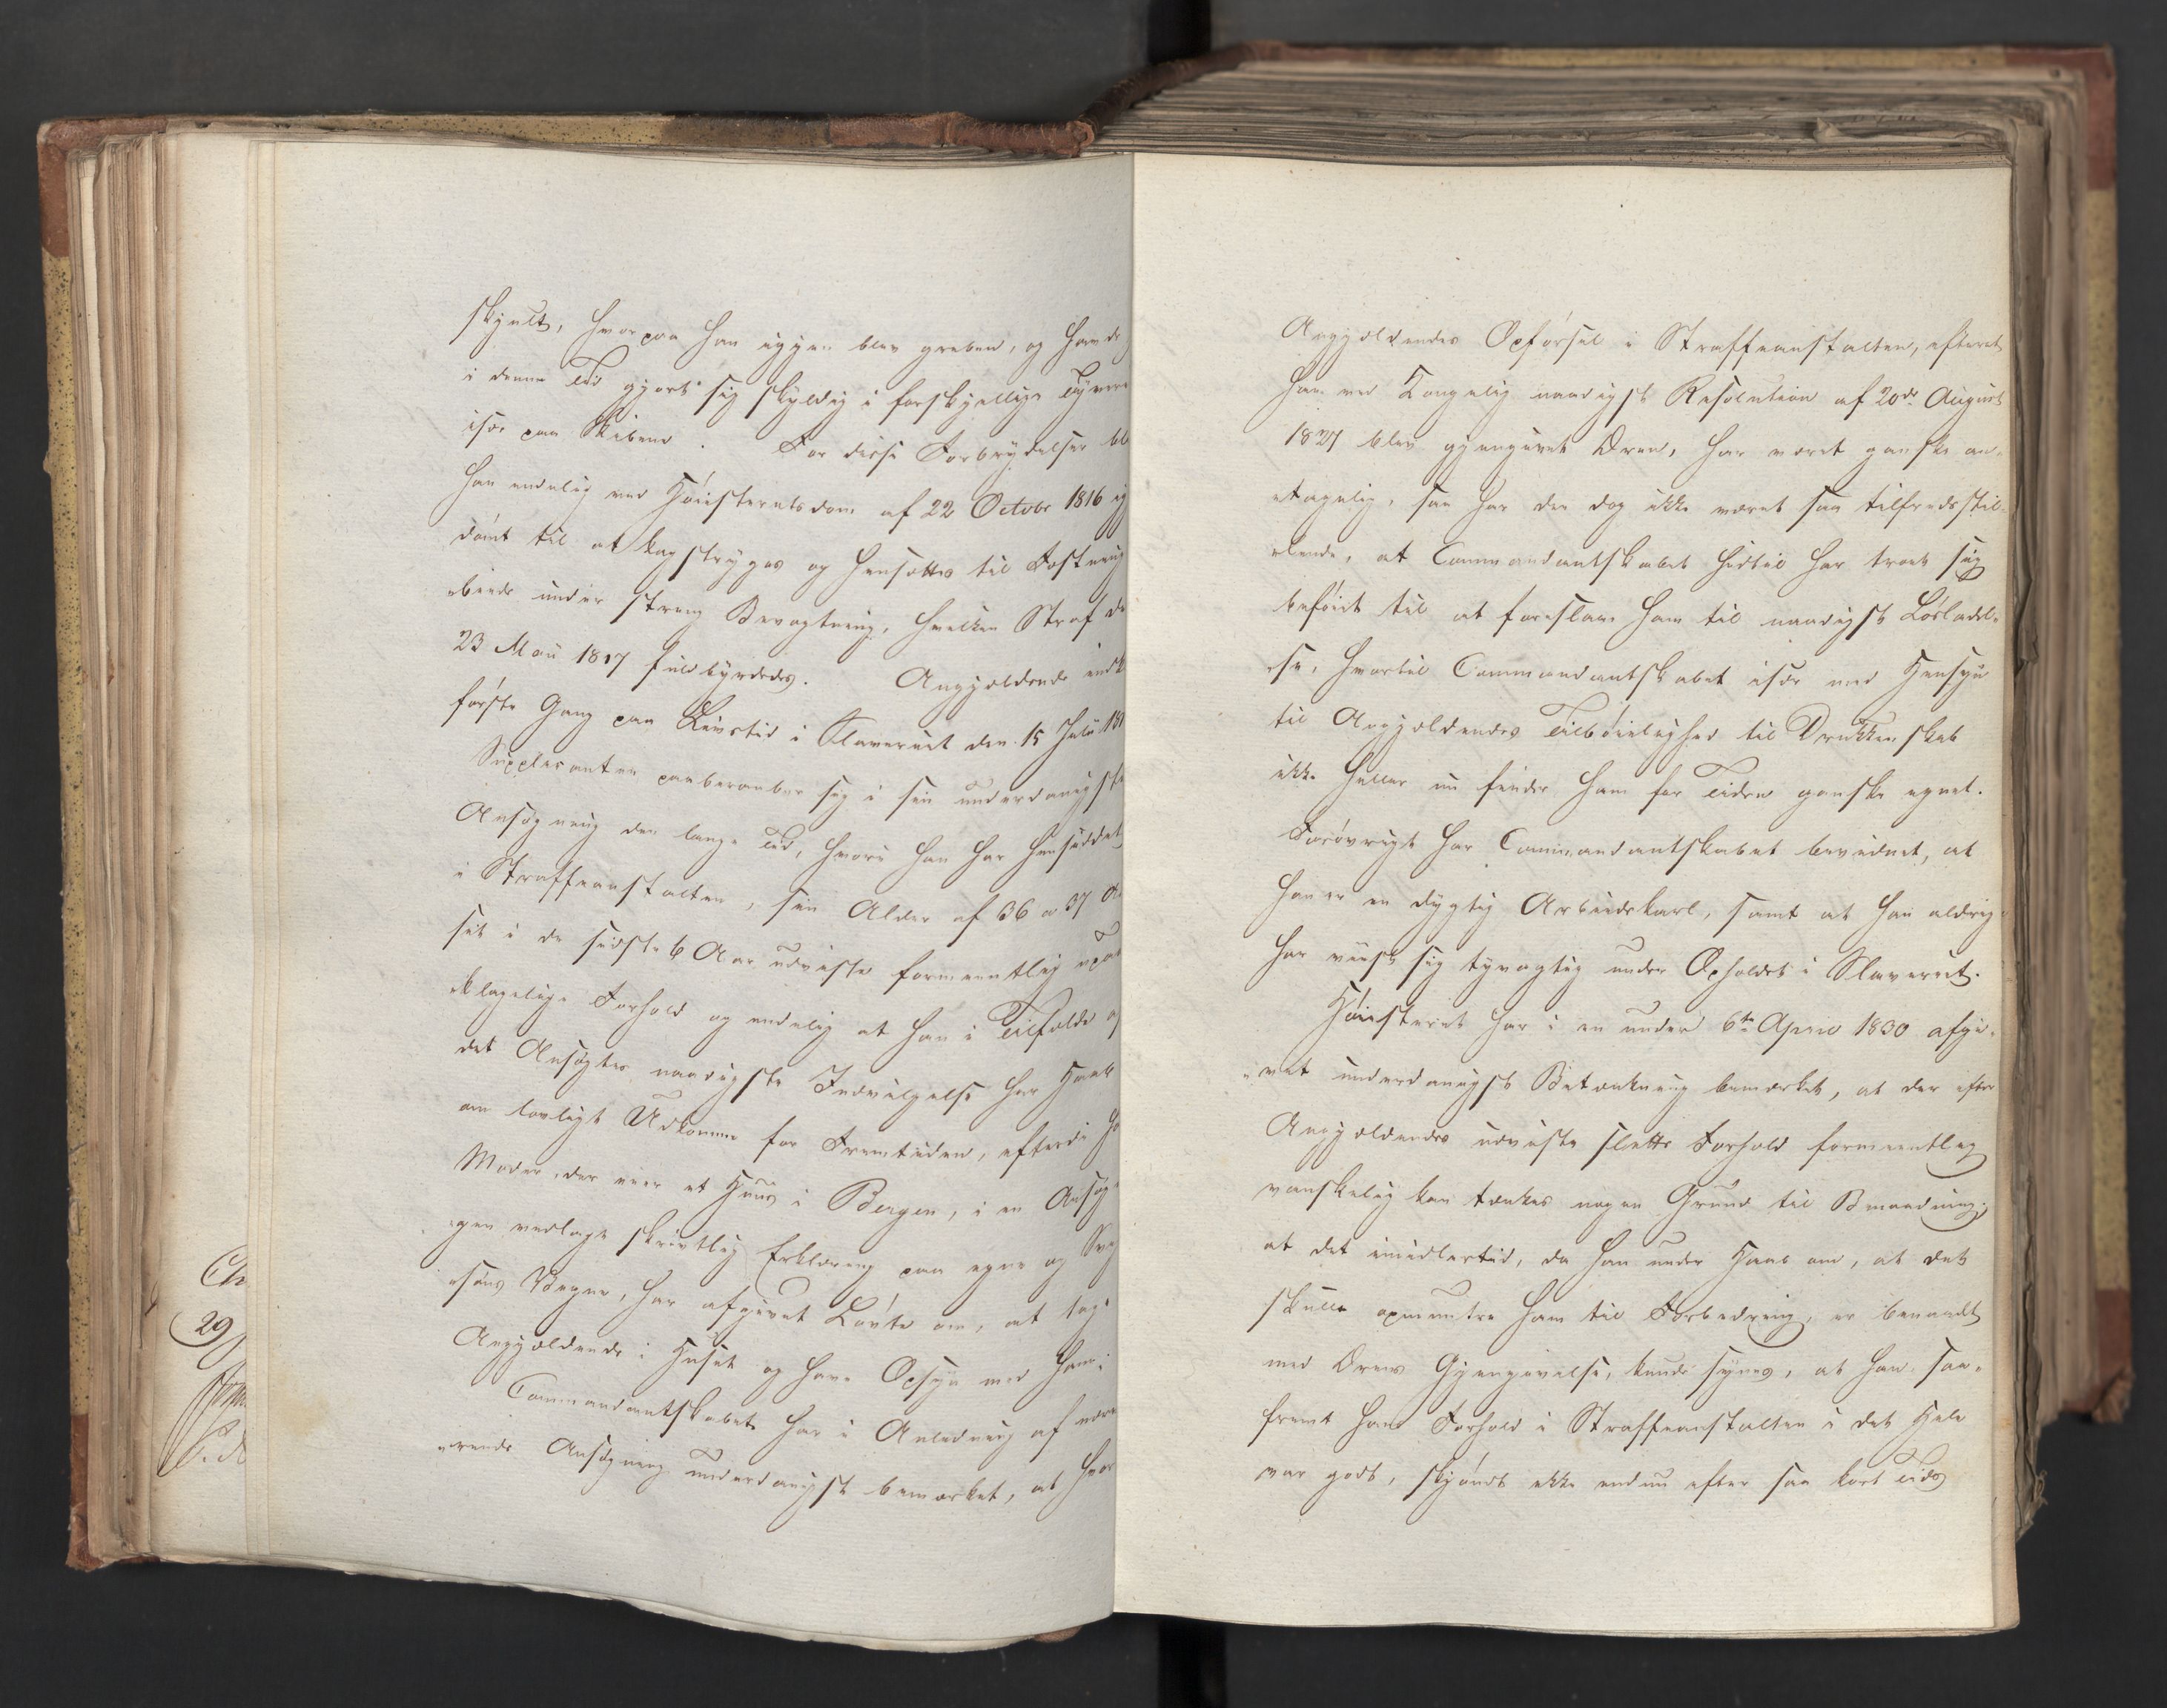 skjult, hvorpaa han igjen blev greben, og havde
i denne Tid gjort sig skyldig i forskjellige Tyveri
især paa Skibene. For disse Forbrydelser bl
han endelig ved Høiesteretsdom af 22 Octobr 1816 ig
dømt til at kagstryges og hensættes til Fæstning
-beide under streng Bevogtning, hvilken Straf de
23 Mai 1817 fuldbyrdedes. Angjældende indk
første Gang paa Livstid i Slaveriet den 15 Julii 181
Supplicanten paaberaaber sig i sin underdanigste
Ansøgning den lange Tid, hvori han har hensiddet
i Straffeanstalten, sin Alder af 36 a 37 A
sit i de sidste 6 Aar udviste formeentlig upaa
-klagelige Forhold og endelig at han i Tilfælde af
det Ansøgtes naadigste Indvilgelse har Haab
om lovligt Udkomme for Fremtiden, efterdi ha
Moder, der eier et Huus i Bergen, i en Ansøg
-gen vedlagt skrivtlig Erklæring paa egne og Sve
-søns Vegne, har afgivet Løvte om, at tage
Angjældende i Huset og have Opsyn med ham;
Commandantskabet har i Anledning af nær
-rende Ansøgning underdanigst bemærket, at hvor
Ch
29
Angjældendes Opførsel i Straffeanstalten, efterat
han ved Kongelig naadigst Resolution af 20de August
1827 blev gjengivet Æren, har været ganske an-
-tagelig, saa har den dog ikke været saa tilfredsstil-
-lende, at Commandantskabet hidtil har troet sig
beføiet til at foreslaae ham til naadigst Løsladel-
-se, hvortil Commandantskabet især med Hensyn
til Angjældendes Tilbøielighed til Drukkenskab
ikke heller nu finder ham for Tiden ganske egnet.
Forøvrigt har Commandantskabet bevidnet, at
han er en dygtig Arbeidskarl, samt at han aldrig
har viist sig tyvagtig under Opholdet i Slaveriet.
Høiesteret har i en under 6te April 1830 afgi-
-vet underdanigst Betænkning bemærket, at der efter
Angjældendes udviste slette Forhold formeentlig
vanskelig kan tænkes nogen Grund til Benaadning;
at det imidlertid, da han under Haab om, at det
skulle opmuntre ham til Forbedring, er benaadet
med Ærens Gjengivelse, kunde synes, at han saa-
fremt hans Forhold i Straffeanstalten i det Hele
var godt, skjøndt ikke endnu efter saa kort Tids